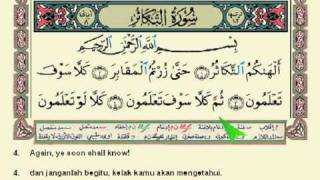 سورة التكاثر
بسم الله الرحمن الرحيم
ألهىكم التكاثر ١ حتى زرتم المقابر ٢ كلا سوف
تعلمون ٣ ثم كلا سوف تعلمون ٤ كلا لو تعلمون
4. Again, ye soon shall know!
4. dan janganlah begitu, kelak kamu akan mengetahui.